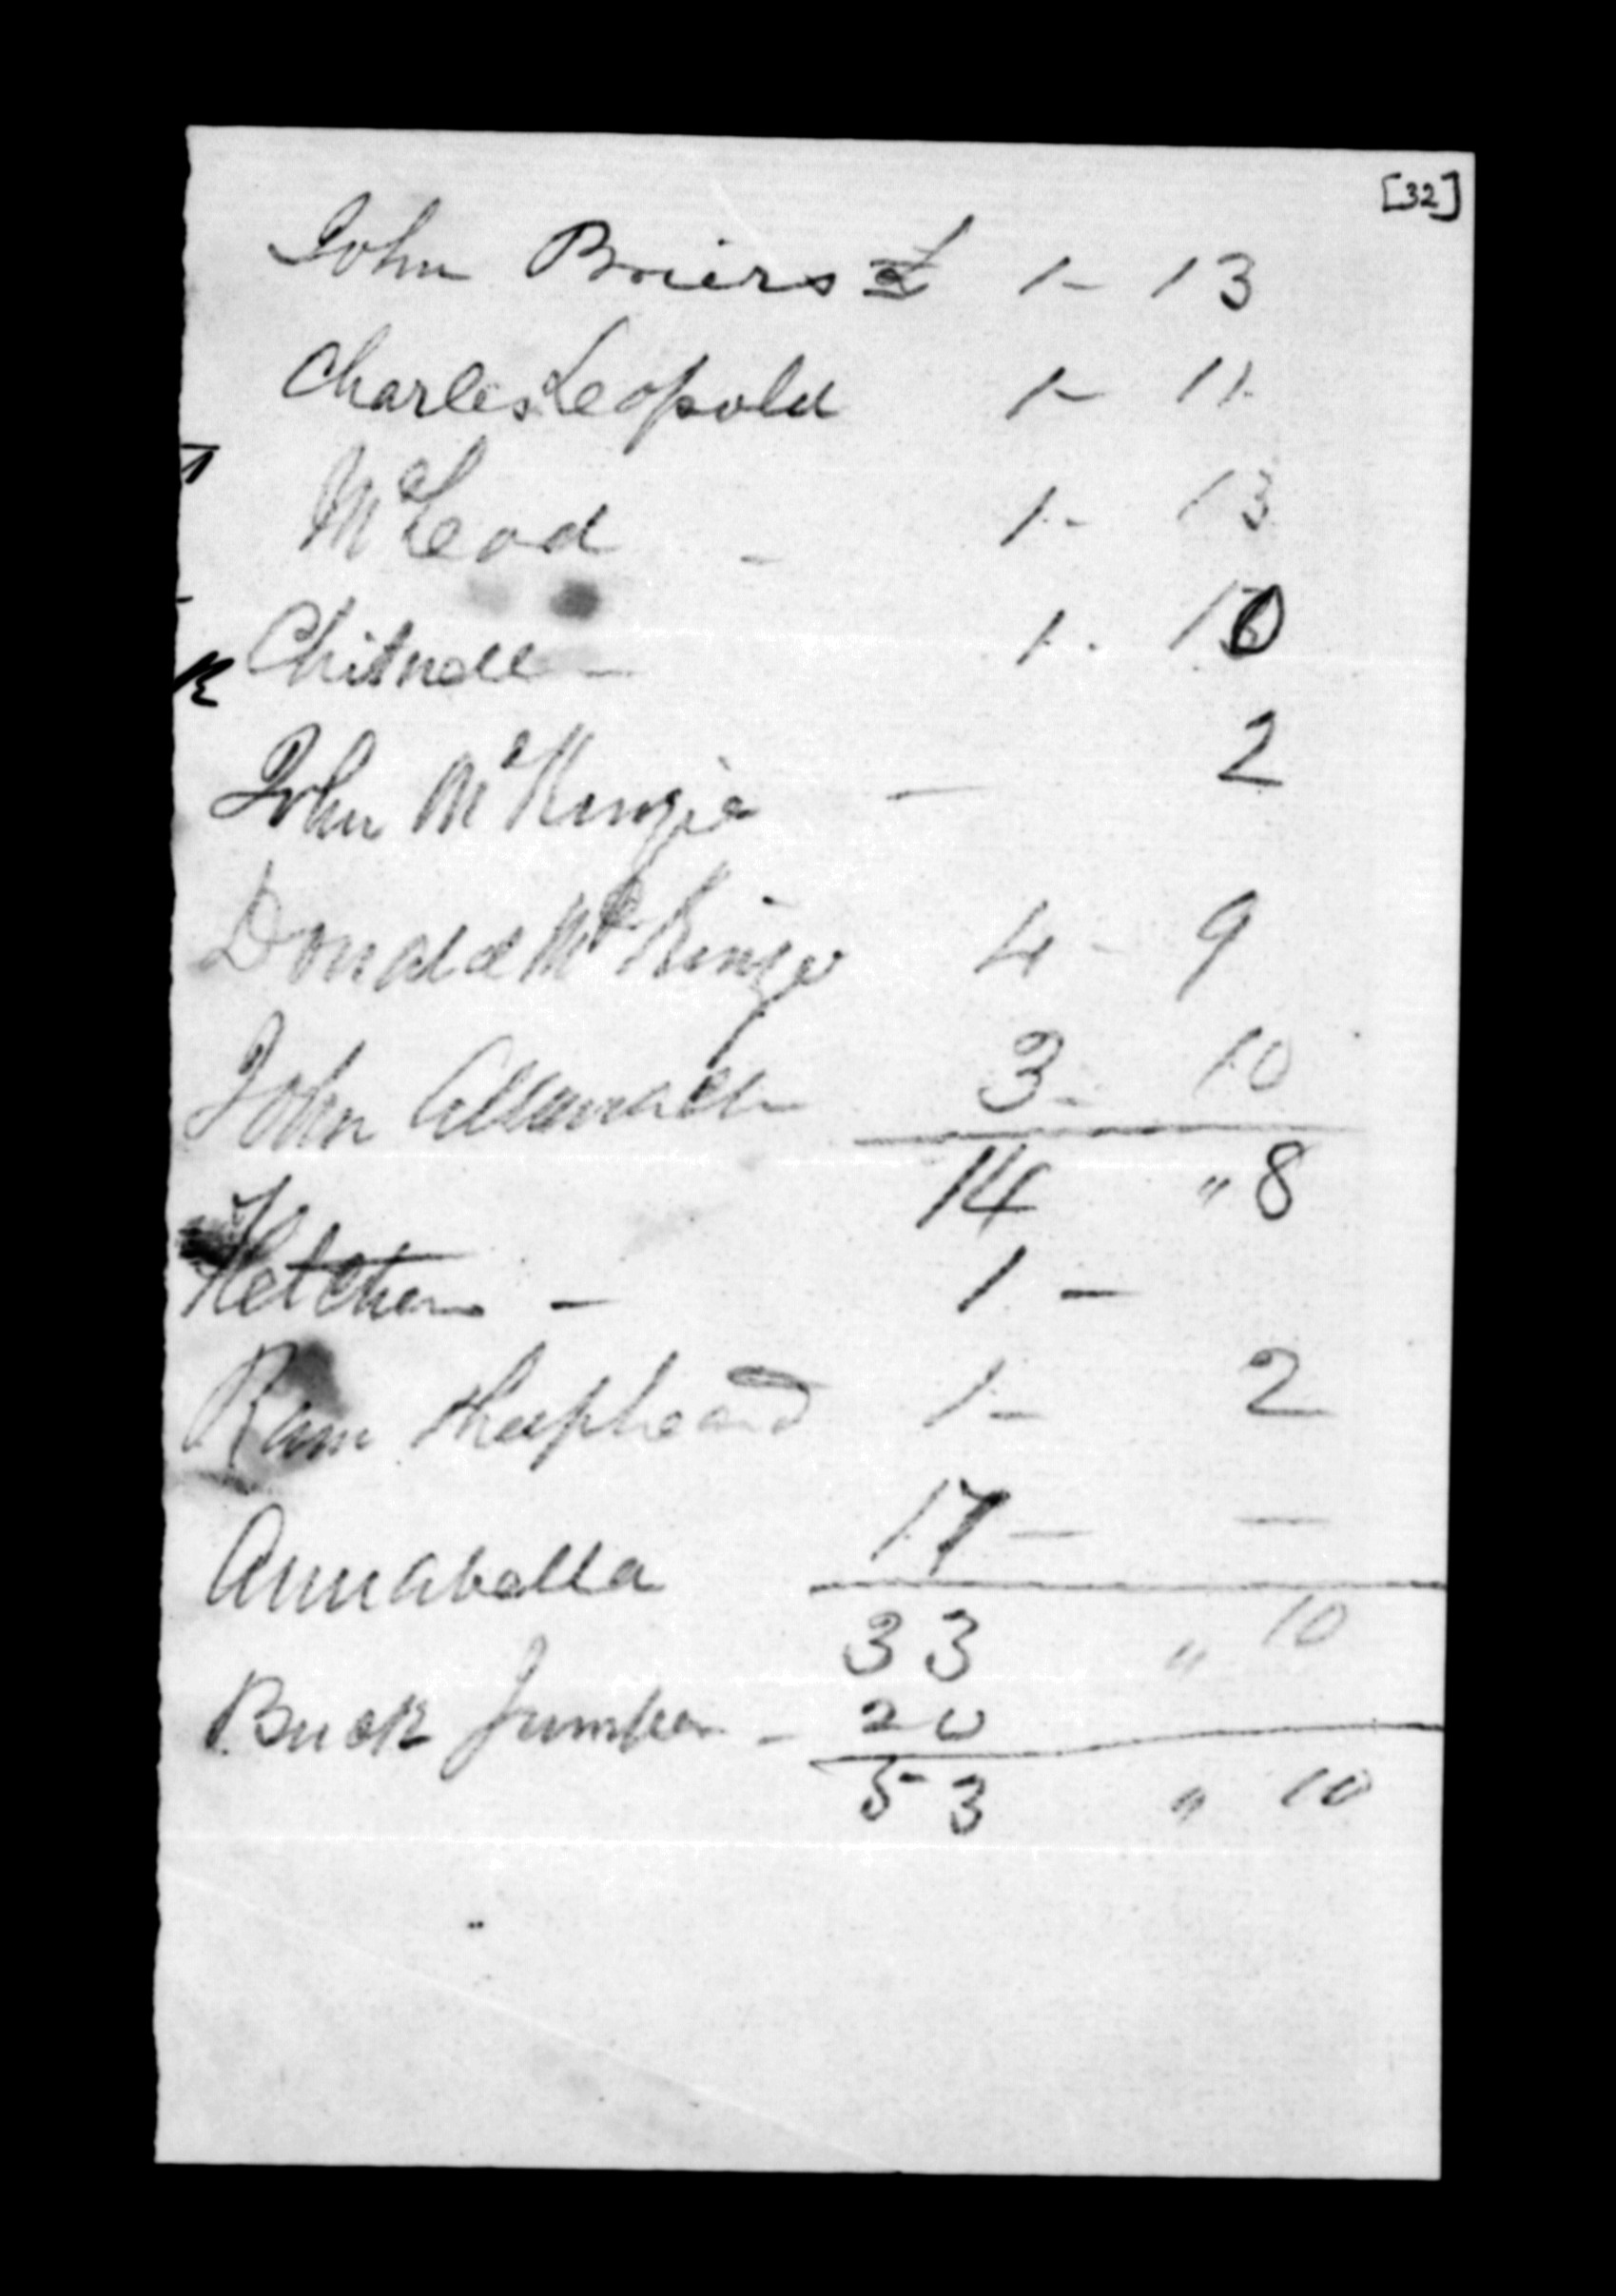 [32]
John Briers £ 1 - 13
Charles Leopold 1 - 11
McLeod - 1 - 13
Chitnell - 1 - 10
John McKenzie - 2
Donald McKinze 4 - 9
John 3 - 10
14 " 8
Fletcher - 1 -
Ram Shepheard 1 - 2
Annabella 17 - -
33 " 10
Buck Jumper - 20
53 " 10